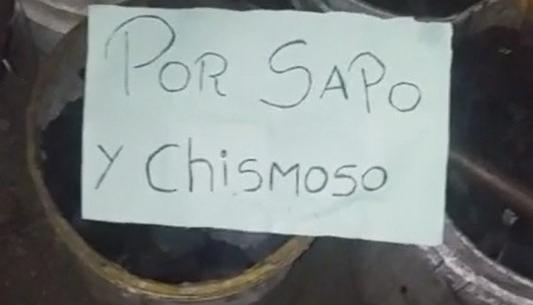 POR SAPO
Y ChiSMOSO